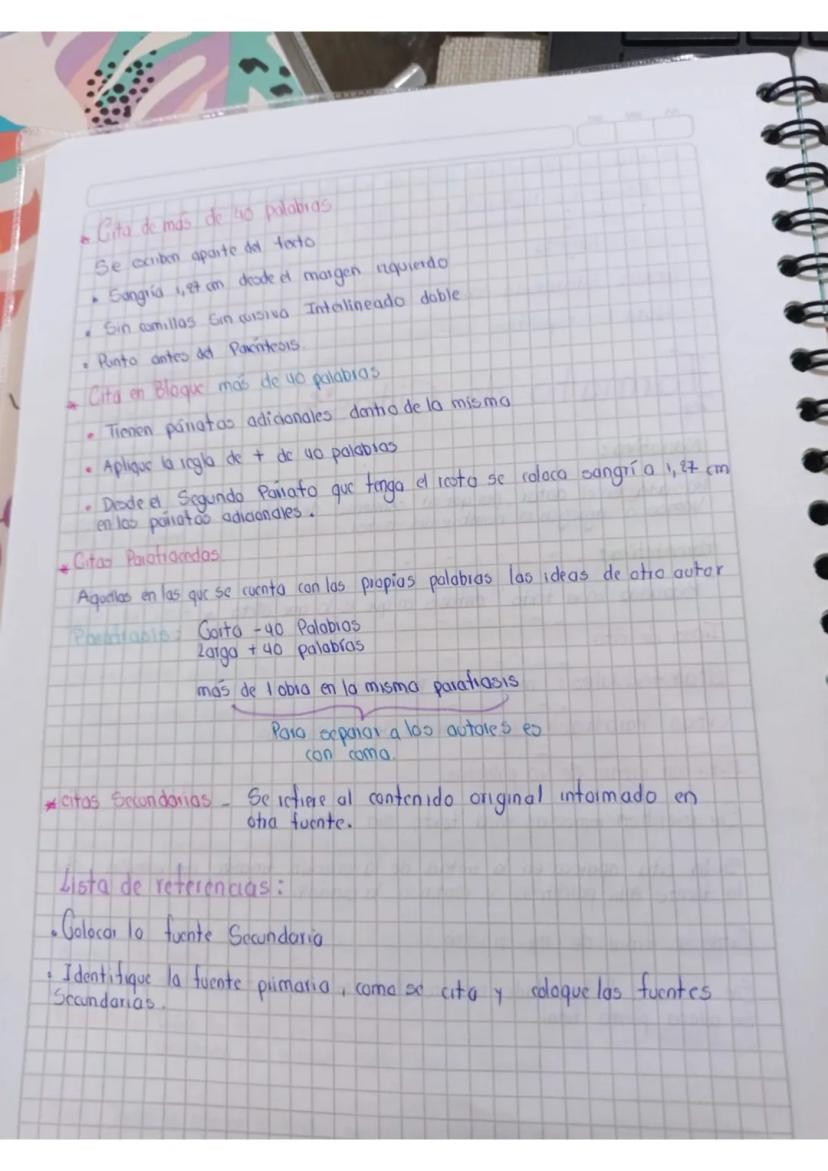 * Cita de más de 40 palabras
Se escriben aparte del texto
• Sangría 1,27 cm desde el margen izquierdo
• Sin comillas Sin cursiva Interlineado doble
• Punto antes del Paréntesis.
* Cita en Bloque más de 40 palabras
• Tienen párrafos adicionales dentro de la misma
• Aplique la regla de + de 40 palabras
• Desde el Segundo Párrafo que tenga el texto se coloca sangría 1,27 cm
en los párrafos adicionales.
* Citas Parafraseadas
Aquellas en las que se cuenta con las propias palabras las ideas de otro autor
Parafrasis: Corta - 40 Palabras
Larga + 40 palabras
más de 1 obra en la misma parafrasis
Para separar a los autores es
con coma.
* citas Secundarias - Se refiere al contenido original informado en
otra fuente.
Lista de referencias:
• Colocar la fuente Secundaria
• Identifique la fuente primaria, como se cita y coloque las fuentes
Secundarias.